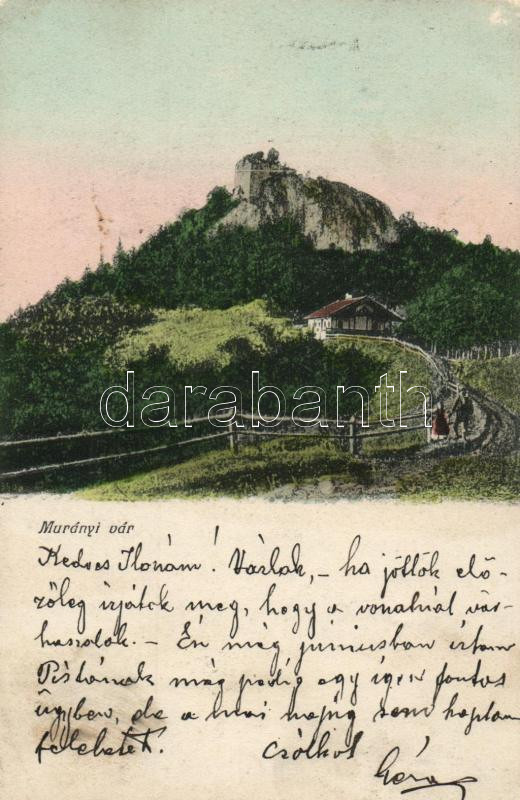 darabanth
Murányi vár
Kedves Ilonám! Várlak, - ha jöttök elő-
zőleg írjátok meg, hogy a vonatnál vár-
hassalak. - Én még júniusban írtam
Pistának még pedig egy igen fontos
ügyben, de a mai napig sem kaptam
feleletet. Csókol
Géza